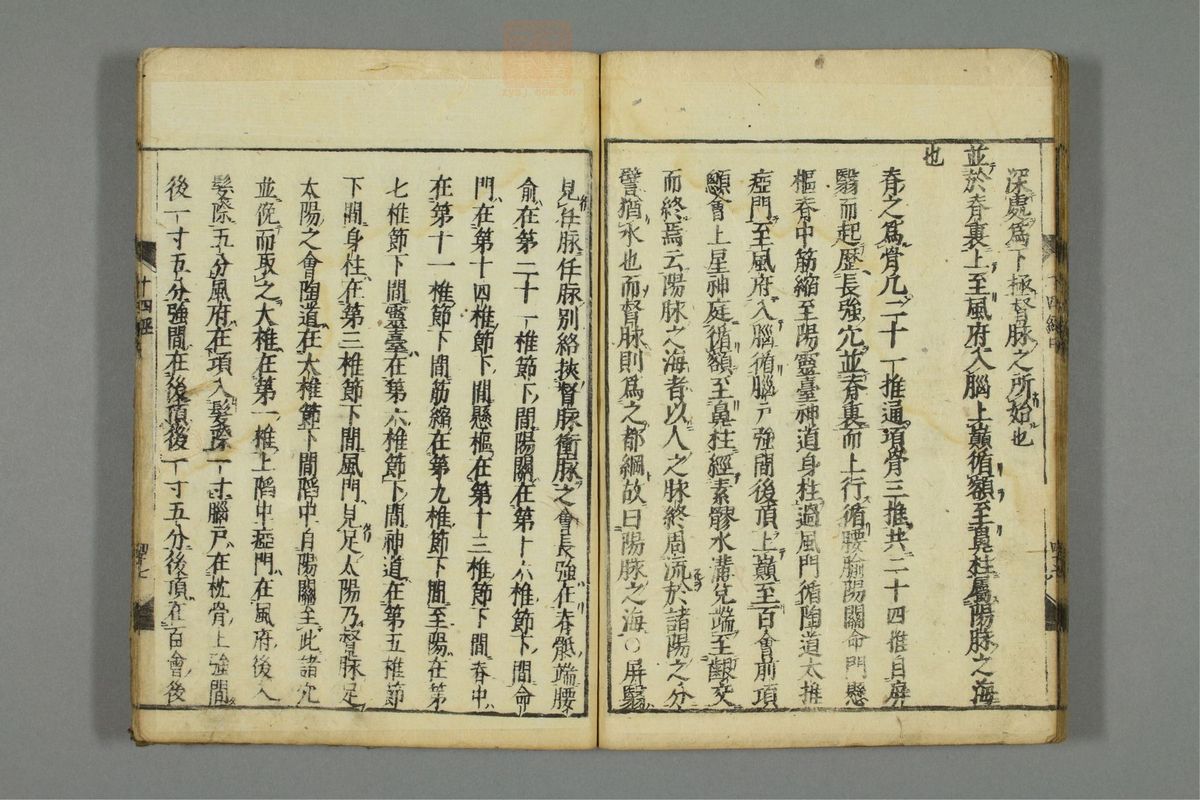 深處為下極督脉之所始也
並於脊裏上至風府入腦上巔循額至鼻柱屬陽脉之海
也
脊之為骨凡二十一椎通項骨三椎共二十四椎自屏
翳而起歷長強穴並脊裏而上行循腰腧陽關命門懸
樞脊中筋縮至陽靈臺神道身柱過風門循陶道大椎
瘂門至風府入腦循腦戶強間後頂上巔至百會前頂
顖會上星神庭循額至鼻柱經素髎水溝兌端至齦交
而終焉云陽脉之海者以人之脉終周流於諸陽之分
譬猶水也而督脉則為之都綱故曰陽脉之海○屏翳
見任脉任脉別絡挾督脉衝脉之會長強在脊骶端腰
俞在第二十一椎節下間陽關在第十六椎節下間命
門在第十四椎節下間懸樞在第十三椎節下間脊中
在第十一椎節下間筋縮在第九椎節下間至陽在第
七椎節下間靈臺在第六椎節下間神道在第五椎節
下間身柱在第三椎節下間風門見足太陽乃督脉足
太陽之會陶道在大椎節下間陷中自陽關至此諸穴
並俛而取之大椎在第一椎上陷中瘂門在風府後入
髮際五分風府在項入髮際一寸腦戶在枕骨上強間
後一寸五分強間在後頂後一寸五分後頂在百會後
十四經
zysj.com.cn